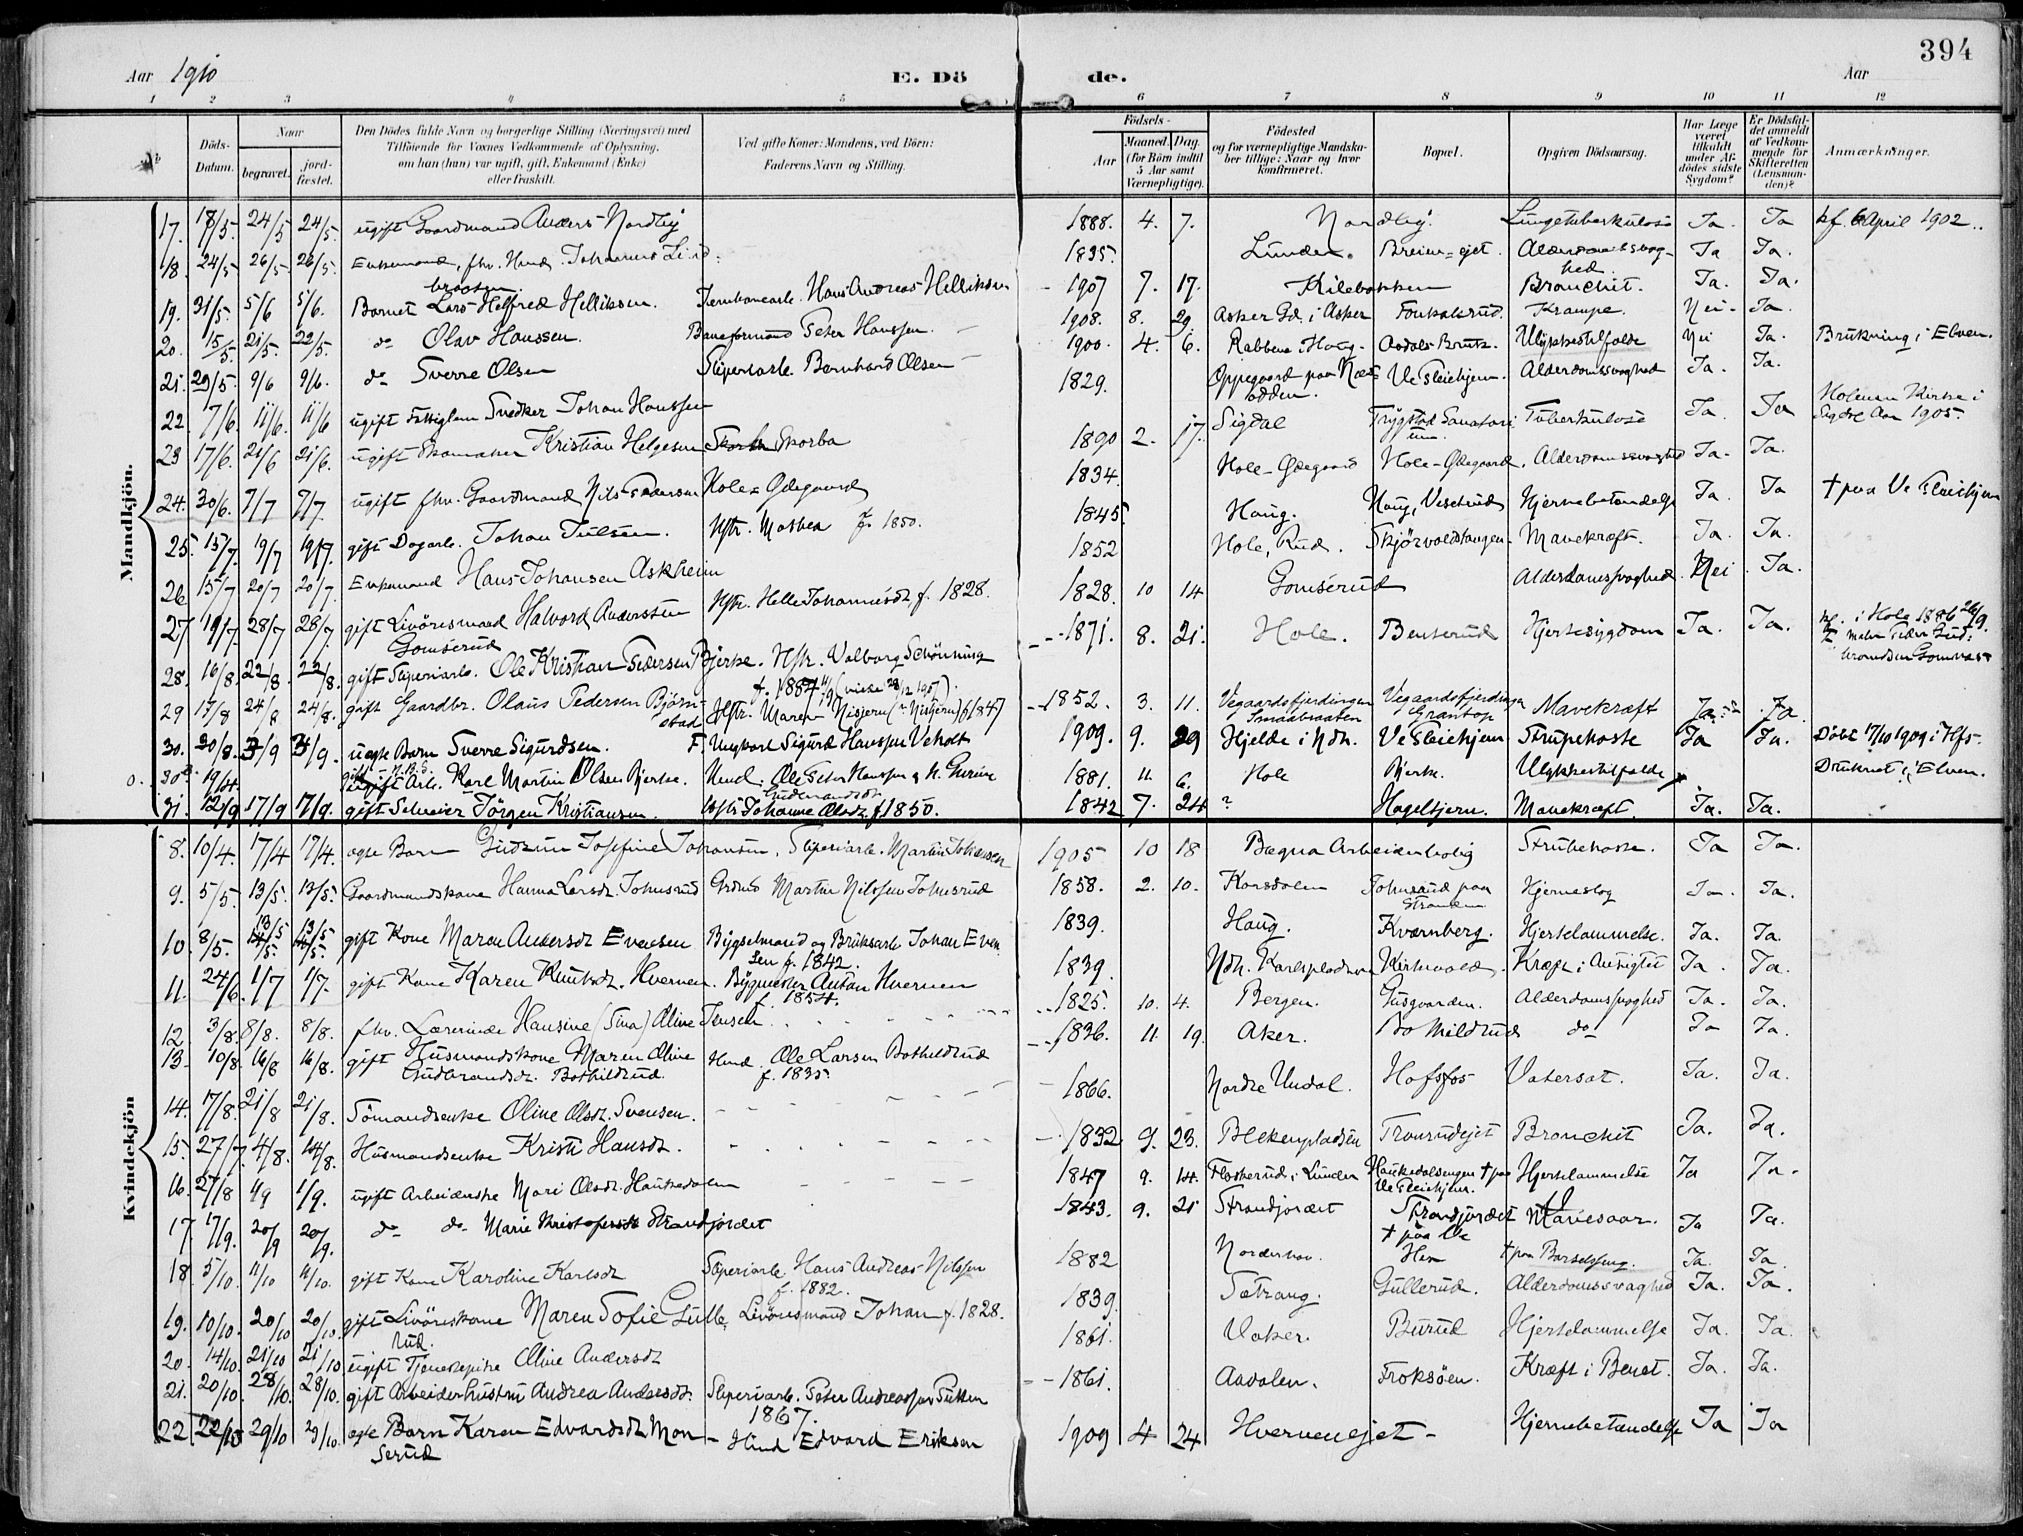 394
Aar 1910 E. Dö de. Aar
1 2 3 4 5 6 7 8 9 10 11 12
№
Döds-Datum.
Naar
begravet.
jord-fæstet.
Den Dödes fulde Navn og borgerlige Stilling (Næringsvei) med
Tilföiende for Voxnes Vedkommende af Oplysning,
om han (hun) var ugift, gift, Enkemand (Enke)
eller fraskilt.
Ved gifte Koner: Mandens, ved Börn:
Faderens Navn og Stilling.
Födsels-
Aar
Maaned. Dag.
(for Börn indtil
5 Aar samt
Værnepligtige).
Födested
og for værnepligtige Mandska-
ber tillige: Naar og hvor
konfirmeret.
Bopæl.
Opgiven Dödsaarsag.
Har Læge
været
tilkaldt
under Af-
dödes sidste
Sygdom?
Er Dödsfal-
det anmeldt
af Vedkom-
mende for
Skifteretten
(Lensman-
den)?
Anmærkninger.
Mandkjön.
17. 18/5. 24/5 24/5. ugift Gaardmand Anders Nordby 1888. 4. 7. Nordby. Lungetuberkulose Ja. Ja kf. 6 April 1902.
18. 24/5 26/5. 26/5. Enkemand, fhv. Husm. Johannes Lindbraaten. 1835. Lunden. Breien-ejet. Alderdomssvaghed Ja Ja.
19. 31/5. 5/6 5/6. Barnet Lars Helfred Helliksen. Jernbanearb. Hans Andreas Helliksen 1907 7. 17. Kilebakken Bronchit. Ja. Ja.
20. 15/5. 21/5. 22/5. do Olav Hanssen. Baneformand Peter Hanssen. 1908. 8. 29 Asker Gd. i Asker Krampe. Nei Ja.
21. 29/5. 9/6 9/6. do Sverre Olsen Sliperiarb. Bernhard Olsen 1900. 4. 6. Rabben i Haug. Aadals Bruk. Ulykkestilfælde Nei Ja. Drukning i Elven.
22. 7/6. 11/6. 11/6 ugift Fattiglem Snedker Johan Hanssen 1829. Oppegaard paa Næsodden. Ve Pleiehjem. Alderdomssvaghed Ja. Ja.
23 17/6. 21/6 21/6. ugift Skomaker Kristian Helgesen Skorba 1890 2. 17. Sigdal Trygstad Sanatorium Tuberkulose Ja Ja Holmen Kirke i Sigdal Aar 1905.
24. 30/6. 7/7 7/7. ugift fhv. Gaardmand Nils Pedersen Hole-Ødegaard 1834. Hole-Ødegaard Hole-Ødegaard. Alderdomssvaghed Ja. Ja.
25. 15/7. 19/7 19/7. gift Dagarb. Johan Juelsen. Hstr. Mathea f. 1850. 1845. Haug. Haug, Veselrud Hjernebetændelse Ja. Ja † paa Ve Pleiehjem
26 15/7 20/7 20/7. Enkemand Hans Johansen Askheim 1852 Hole, Rud. Skjörvoldtangen. Mavekræft. Ja. Ja.
27 19/7. 28/7 28/7. gift Livöresmand Halvord Anderssen Gomserud Hstr. Helle Johannesdt. f. 1828. 1828. 10 14 Gomserud Alderdomssvaghed. Nei Ja.
28. 16/8. 22/8. 22/8. gift Sliperiarb. Ole Kristian Pedersen Bjerke. Hstr. Valborg Schönning 1871. 8. 21. Hole. Benterud Hjertesygdom Ja. Ja. i Hole 1886 26/9.
29 17/8 24/8 24/8. gift Gaardbr. Olaus Pedersen Björnstad Hstr. Maren f. 1847 1852. 3. 11. Vegaardsfjerdingen Smaabraaten Vegaardsfjerdingen Grantop Mavekræft Ja Ja.
30. 30/8. 3/9 3/9. uægte Barn Sverre Sigurdsen. F. Ungkarl Sigurd Hanssen Veholt 1909. 9. 29 Hjelde i Ndh. Ve Pleiehjem Strupehoste Ja Ja. Döbt 17/10 1909 i Hfs.
30a. 19/4. ugift Arb. Karl Martin Olsen Bjerke. Husm. Ole Peter Hanssen 1881. 11. 6. Hole Bjerke. Ulykkestilfælde Druknet i Elven.
31. 12/9 17/9 17/9. gift Jörgen Kristiansen. Hstr. Johanne Olsdt. f. 1850. 1842 7. 24 ? Hagelbjern. Mavekræft. Ja. Ja.
Kvindekjön
8. 10/4. 17/4 17/4. ægte Barn Gudrun Josefine Johansen, Sliperiarb. Martin Johansen 1905 10 18 Bægna Arbeiderbolig Strubehoste. Ja Ja.
9. 5/5. 13/5. 13/5. Gaardmandskone Hanna Larsdt. Johnsrud Grdmd Martin Nilssen Johnsrud 1858. 2. 10. Korsdalen Johnsrud paa Stranden Hjerneslag Ja. Ja.
10. 8/5. 13/5 13/5 gift Kone Maren Andersdt. Evensen Bygselmand og Bruksarb. Johan Evensen f. 1842. 1839. Haug. Kværnberg. Hjertelammelse. Ja. Ja.
11. 24/6. 1/7 1/7. gift Kone Karen Knutsdt. Hvernen. Bygmester Anton Hvernen f. 1854. 1839. Ndh. Karlspladsen Kirkevold. Kræft i Ansigtet Ja. Ja.
12. 3/8. 8/8. 8/8. fhv. Lærerinde Hansine (Sina) Oline Jensen 1825. 10. 4. Bergen. Gusgaarden. Alderdomssvaghed Ja. Ja.
13. 10/8. 16/8 16/8. gift Husmandskone Maren Oline Gudbrandsdt. Bothildrud. Husmd. Ole Larsen Bothildrud f. 1835. 1836. 11. 19. Aker. do Ja Ja.
14. 17/8. 21/8 21/8. Sömandsenke Oline Olsdt. Svensen. 1866. Nordre Undal. Hofsfos Vatersot. Ja. Ja.
15. 27/7. 4/8. 14/8. Husmandsenke Kristi Hansdt. 1832 9. 23. Blekenpladsen Tronrudejet Bronchit Ja. Ja.
16. 27/8 1/9 1/9. ugift Arbeiderske Mari Olsdt. Haukedalen 1847 9. 14. Floskerud i Lunder Haukedalsengen † paa Ve Pleiehjem. Hjertelammelse Ja Ja.
17. 17/9. 20/9 20/9. do do Marie Kristofersdt Strandjordet 1843. 9. 21 Strandjordet Strandjordet † paa Ve Mavesaar. Ja Ja.
18. 5/10. 11/10 11/10. gift Kone Karoline Karlsdt Sliperiarb. Hans Andreas Nilssen f. 1882. 1882 Norderhov. Hen † paa Barselseng. Ja. Ja.
19. 10/10. 20/10 20/10. gift Livöreskone Maren Sofie Gullerud. Livöresmand Johan f. 1828. 1839. Sætrang. Gullerud. Alderdomssvaghed Ja. Ja.
20. 14/10. 21/10 21/10 ugift Tjenestepike Oline Andersdt 1861. Vaker. Burud Hjertelammelse Ja. Ja.
21. 20/10. 28/10. 28/10. gift Arbeiderhustru Andrea Andersdt. Sliperiarb. Peter Andreassen 1867. 1861. Aadalen. Froksöen. Kræft i Benet. Ja. Ja.
22. 22/10 29/10 29/10. ægte Barn Karen Edvardsdt Monserud Husmd Edvard Eriksen 1909 4 24 Hvervenejet Hjernebetændelse Ja Ja